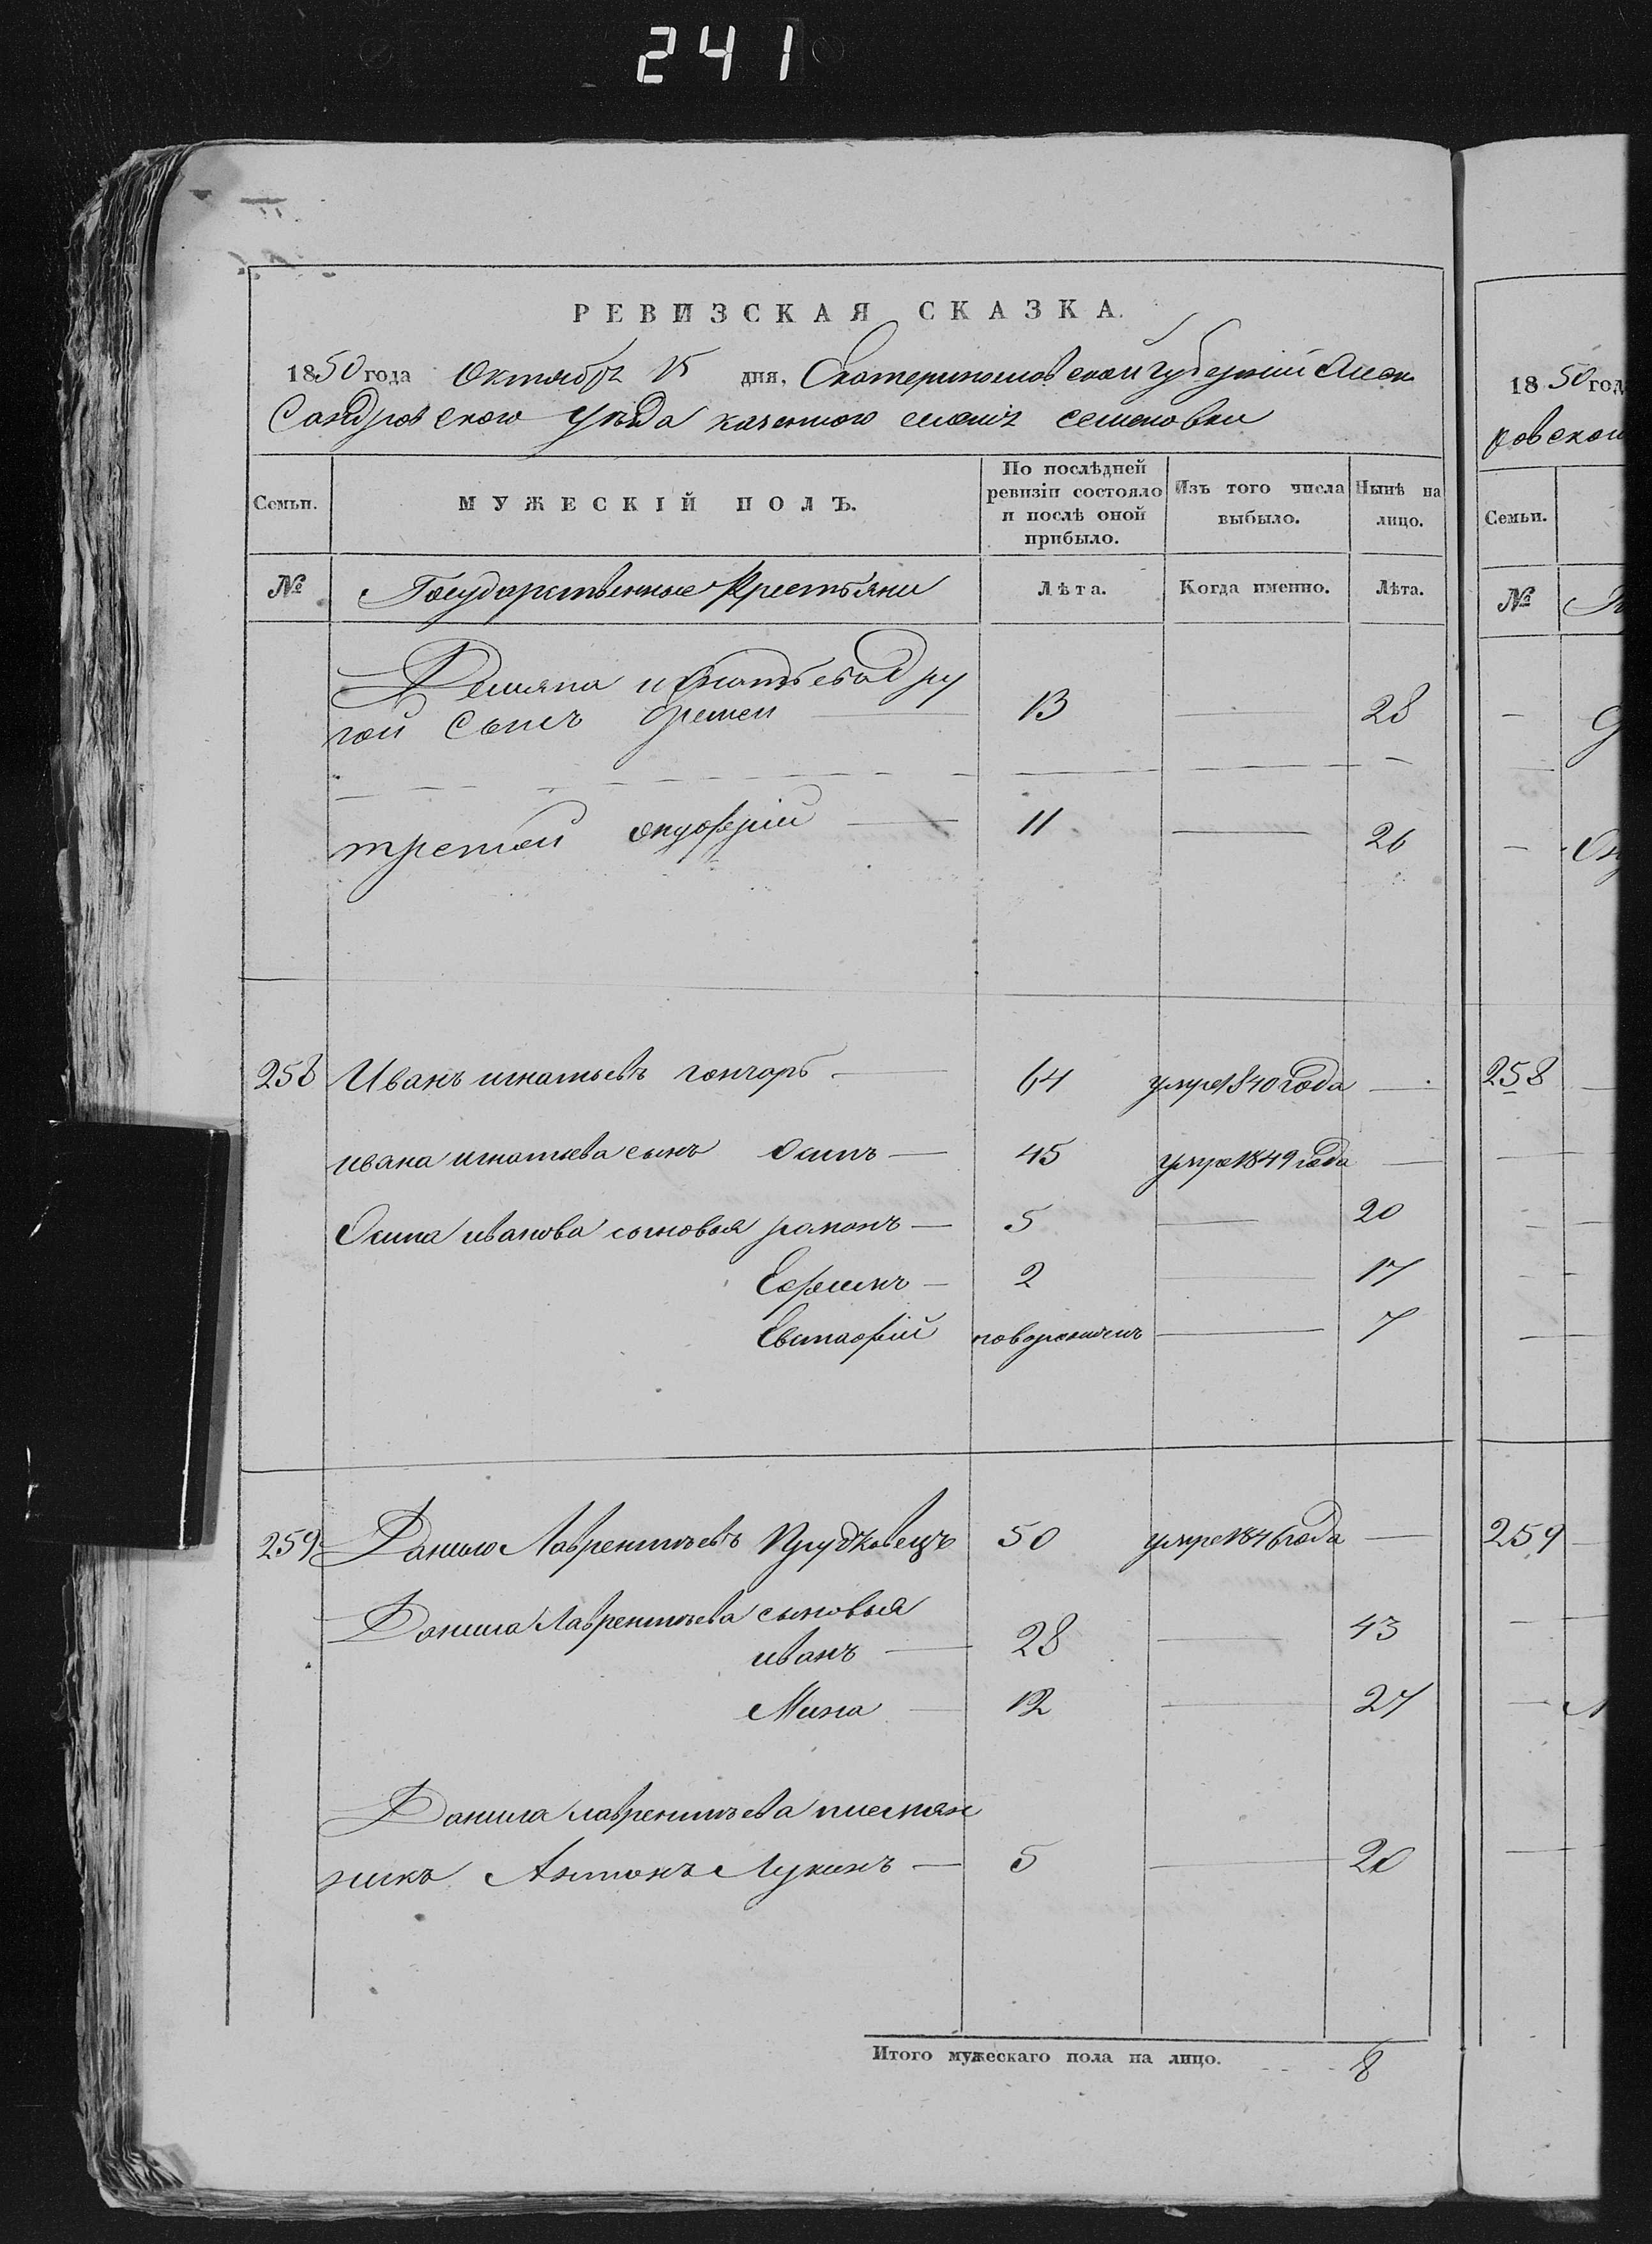 241
РЕВИЗСКАЯ СКАЗКА.
1850 года Октября 15 дня, Екатеринославской губерній Алек
сандровского уезда казенного селенія семеновки
Семьи.
МУЖЕСКІЙ ПОЛЪ.
По послѣдней ревизіи состояло и послѣ оной прибыло.
Изъ того числа выбыло.
Нынѣ на лицо.
№ Государственные Крестьяни Лѣта. Когда именно. Лѣта.
Демяна игнатьева дру
гой сынъ 13 28
третий онуфрій 11 26
258 Иванъ игнатьевъ гончаръ 64 умре 1840 года
ивана игнатьева сынъ осипъ 45 умре 1849 года
Осипа иванова сыновья 5 20
Ефимъ 2 17
Евстафій новорожденъ 7
259 Данило Лаврентьевъ 50 умре 1846 года
Данила Лаврентьева сыновья
иванъ 28 43
Мина 12 27
Данила лаврентьева племян
никъ Антонъ Лукинъ 5 20
Итого мужескаго пола на лицо. 8
18 50 год
ровской
Семьи.
№
258
259